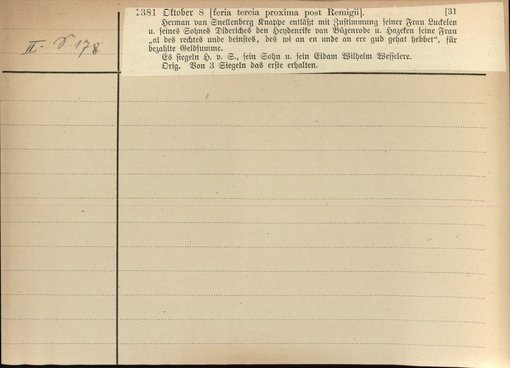 1381 Oktober 8 [feria tercia proxima post Remigii]. [31
Herman van Snellenberg Knappe entläßt mit Zustimmung seiner Frau Luckelen
u. seines Sohnes Dideriches den Heydenrik van Bözenrode u. Hazeken seine Frau
„al des rechtes unde deinstes, des wi an en unde an ere gud gehat hebbet“, für
bezahlte Geldsumme.
Es siegeln H. v. S., sein Sohn u. sein Eidam Wilhelm Wesselere.
Orig. Von 3 Siegeln das erste erhalten.
II. S 178